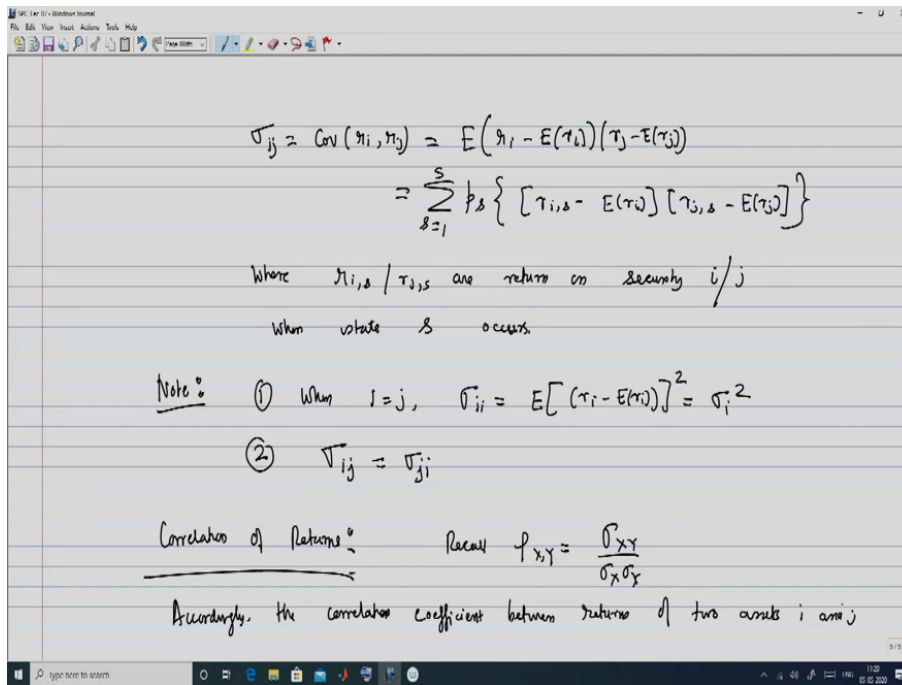 SPC Lec 07 - Windows Journal
File Edit View Insert Actions Tools Help
Page Width
σij = Cov(ri, rj) = E(ri - E(ri))(rj - E(rj))
= Σ_{s=1}^{S} ps { [ri,s - E(ri)] [rj,s - E(rj)] }
Where ri,s / rj,s are return on security i/j
when state s occurs.
Note: ① When i=j, σii = E[(ri - E(ri))]² = σi²
② σij = σji
Correlation of Returns: Recall ρX,Y = σXY / σXσY
Accordingly, the correlation coefficient between returns of two assets i and j
9/9
Type here to search
ENG 11:20
05 05 2020